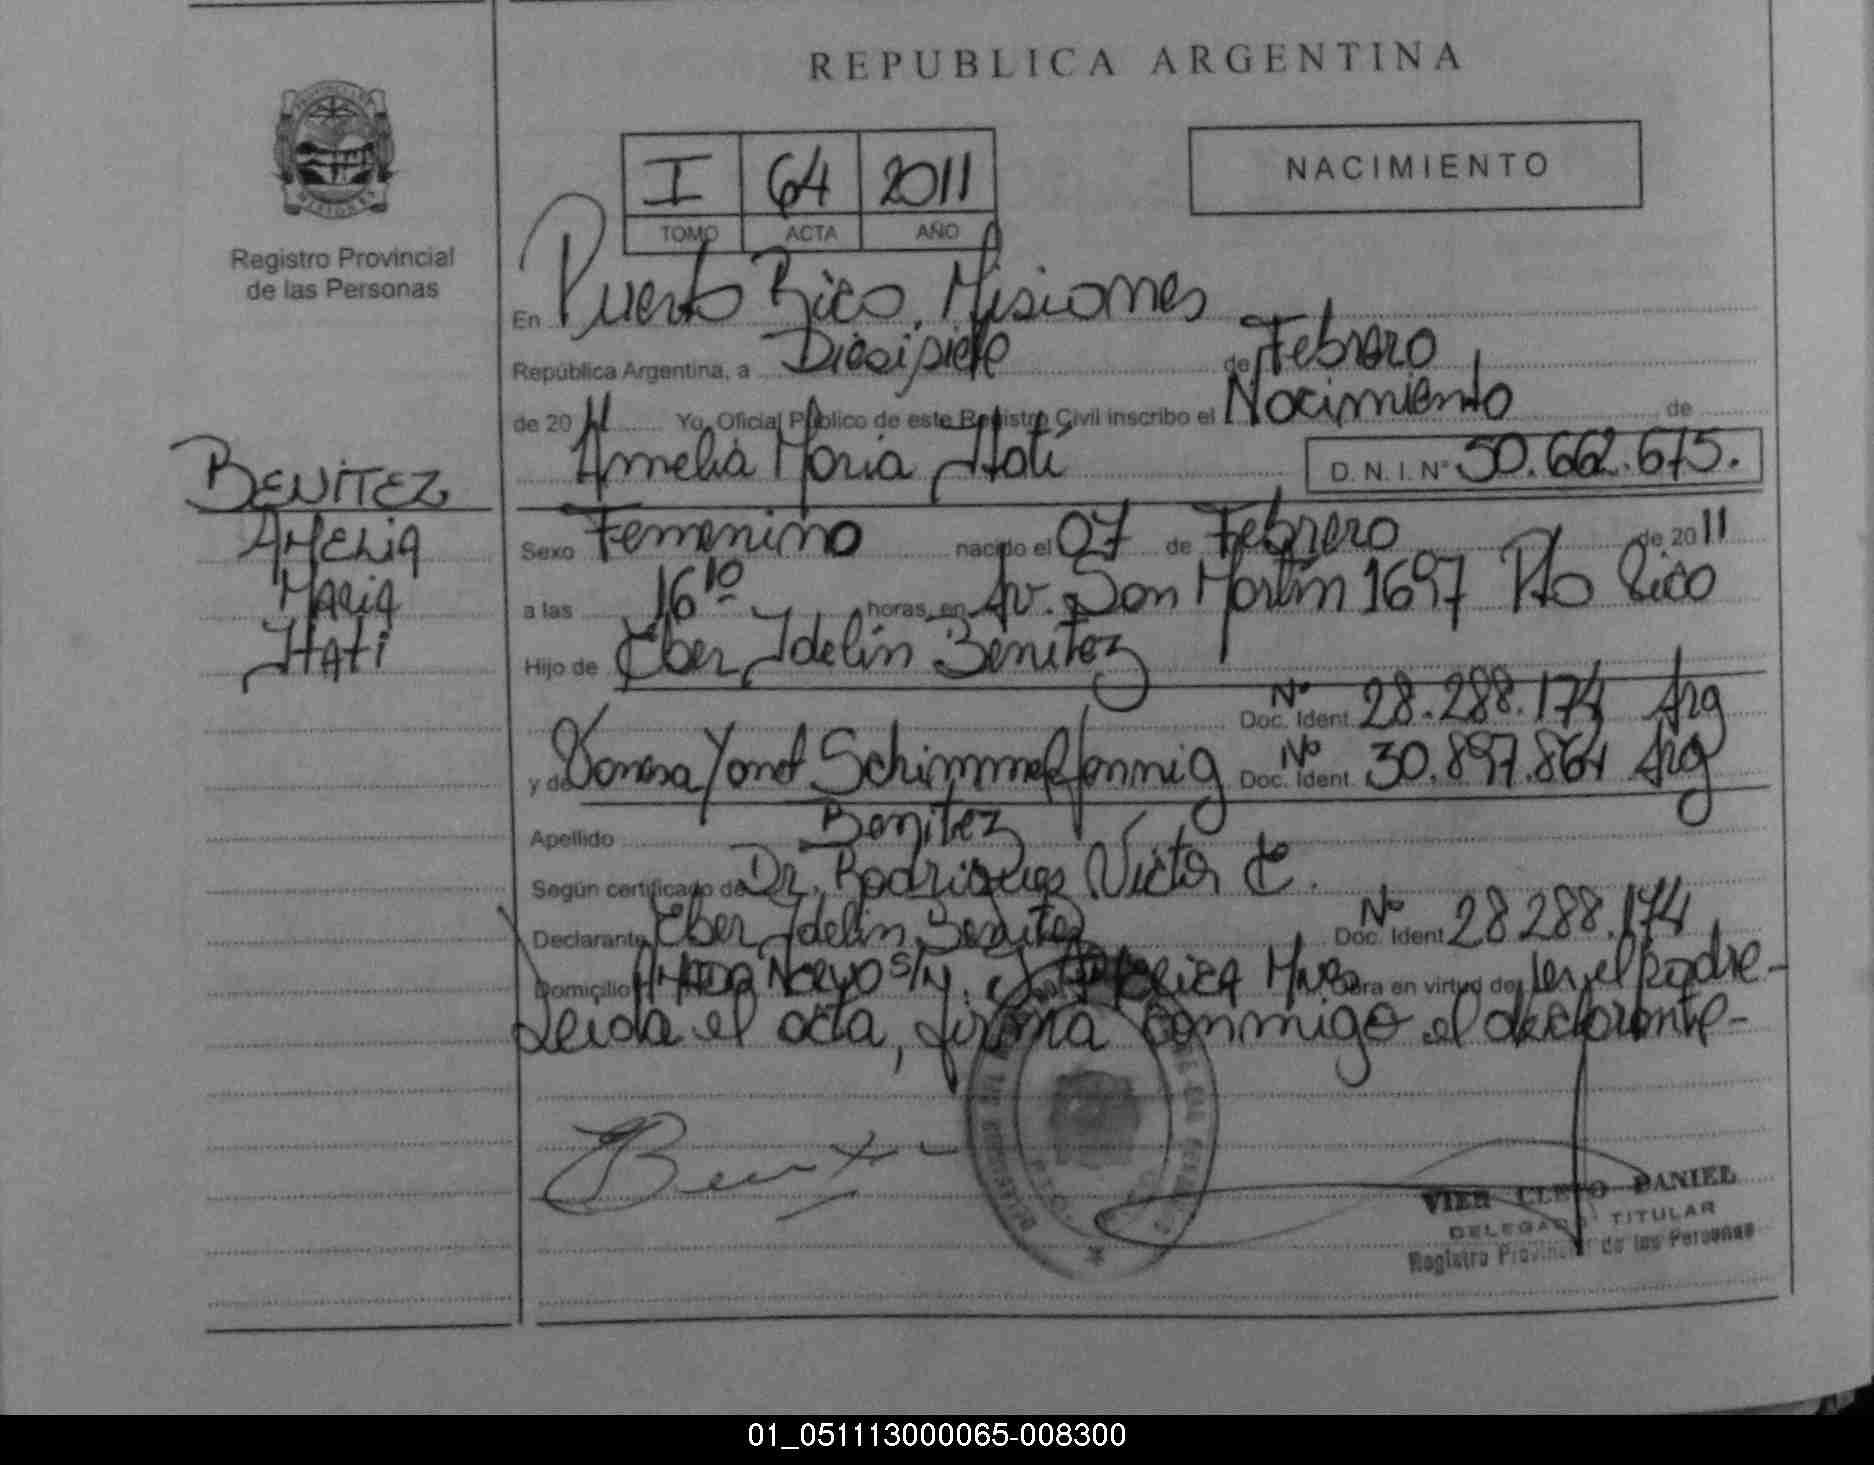 REPUBLICA ARGENTINA
PROVINCIA DE
MISIONES
Registro Provincial
de las Personas
I 64 2011
TOMO ACTA AÑO
NACIMIENTO
En Puerto Rico, Misiones
República Argentina, a Diesisiete de Febrero
de 2011 Yo, Oficial Público de este Registro Civil inscribo el Nacimiento de
Amelia Maria Itatí D.N.I. Nº 50.662.675.
BENITEZ
AMELIA
MARIA
ITATI
Sexo Femenino nacido el 07 de Febrero de 2011
a las 16 10 horas, en Av. San Martín 1697 Pto Rico
Hijo de Eber Idelin Benitez
Nº
Doc. Ident. 28.288.174 Arg
y de Vanesa Yanet Schimmelfennig Nº Doc. Ident. 30.897.864 Arg
Apellido Benitez
Según certificado de Dr. Rodriguez Victor
Declarante Eber Idelin Benitez Nº Doc. Ident. 28.288.174
Domicilio s/n. Mnes Obra en virtud de ser el padre-
Leida el acta, firma conmigo el declarante-
VIER CLETO DANIEL
DELEGADO TITULAR
Registro Provincial de las Personas
01_051113000065-008300